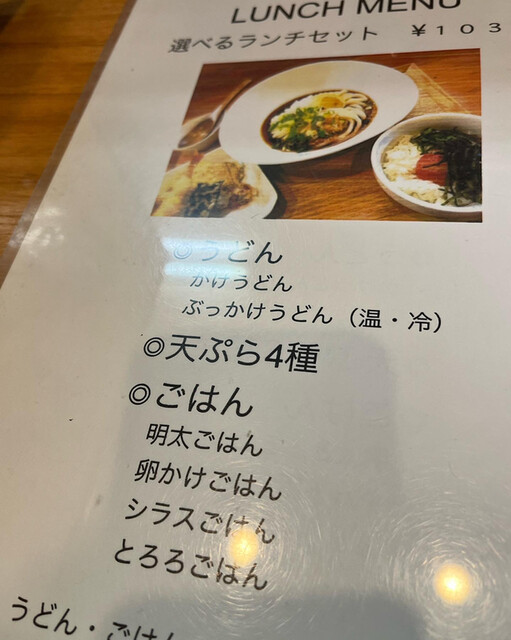 LUNCH MENU
選べるランチセット ¥103
◎うどん
かけうどん
ぶっかけうどん（温・冷）
◎天ぷら4種
◎ごはん
明太ごはん
卵かけごはん
シラスごはん
とろろごはん
うどん・ごはん